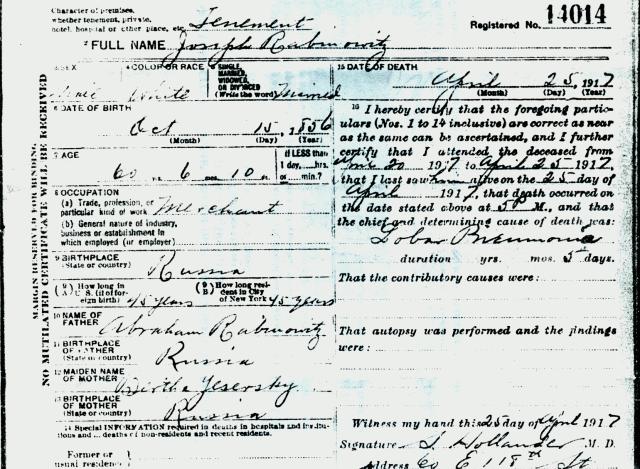 Character of premises,
whether tenement, private,
hotel, hospital or other place, etc. Tenement
Registered No. 14014
2 FULL NAME Joseph Rabinowitz
3 SEX Male
4 COLOR OR RACE White
5 SINGLE, MARRIED, WIDOWED, OR DIVORCED (Write the word) Married
6 DATE OF BIRTH
Oct 15, 1856
(Month) (Day) (Year)
7 AGE
60 yrs. 6 mos. 10 ds.
If LESS than
1 day, ... hrs.
or ... min.?
8 OCCUPATION
(a) Trade, profession, or
particular kind of work Merchant
(b) General nature of industry,
business or establishment in
which employed (or employer)
9 BIRTHPLACE
(State or country) Russia
(9 A) How long in U. S. (if of foreign birth) 45 years
(9 B) How long resident in City of New York 45 years
10 NAME OF
FATHER Abraham Rabinowitz
11 BIRTHPLACE
OF FATHER
(State or country) Russia
12 MAIDEN NAME
OF MOTHER Bertha Yesersky
13 BIRTHPLACE
OF MOTHER
(State or country) Russia
14 Special INFORMATION required in deaths in hospitals and institutions
and deaths of non-residents and recent residents.
Former or
usual residence
MARGIN RESERVED FOR BINDING
NO MUTILATED CERTIFICATE WILL BE RECEIVED
15 DATE OF DEATH
April 25, 1917
(Month) (Day) (Year)
16 I hereby certify that the foregoing particulars
(Nos. 1 to 14 inclusive) are correct as near
as the same can be ascertained, and I further
certify that I attended the deceased from
1917 to April 25 1917,
that I last saw him alive on the 25 day of
April 1917, that death occurred on
the date stated above at 5 P M., and that
the chief and determining cause of death was:
Lobar Pneumonia
duration yrs. mos. 5 days.
That the contributory causes were:
That autopsy was performed and the findings
were:
Witness my hand this 25 day of April 1917
Signature Hollander M. D.
Address 60 E 118th St